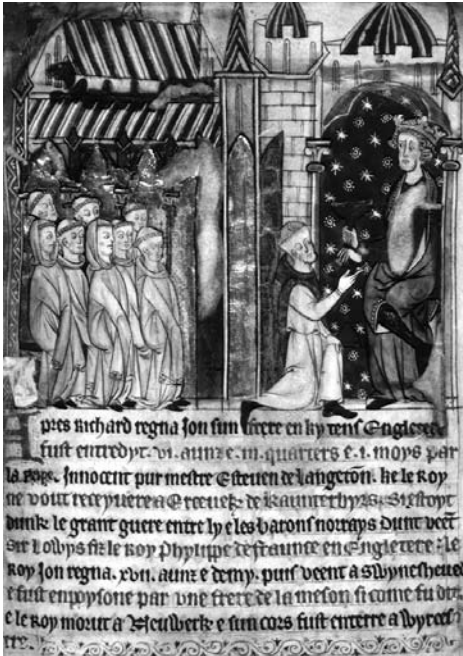 pres Richard regna Jon sun frere en ky tens Engletere
fust entredyt .vi. aunz e .iii. quarters e .i. moys par
la Pape Innocent pur mestre Esteuen de Langeton. ke le Roy
ne vout receyuere a Erceuek de Kaunterbyrs. Si estoyt
dunk le grant guere entre ly e les barons norrays Dunt veent
sir Lowys fiz le Roy Phylippe de fraunce en Engletere. le
Roy Jon regna .xvii. aunz e demy. puis veent a Swynesheued
e fust enpoysone par une frere de la meson si come fu dit.
e le Roy morut a Neuwerk e sun cors fust enterre a Wyrces
tre.